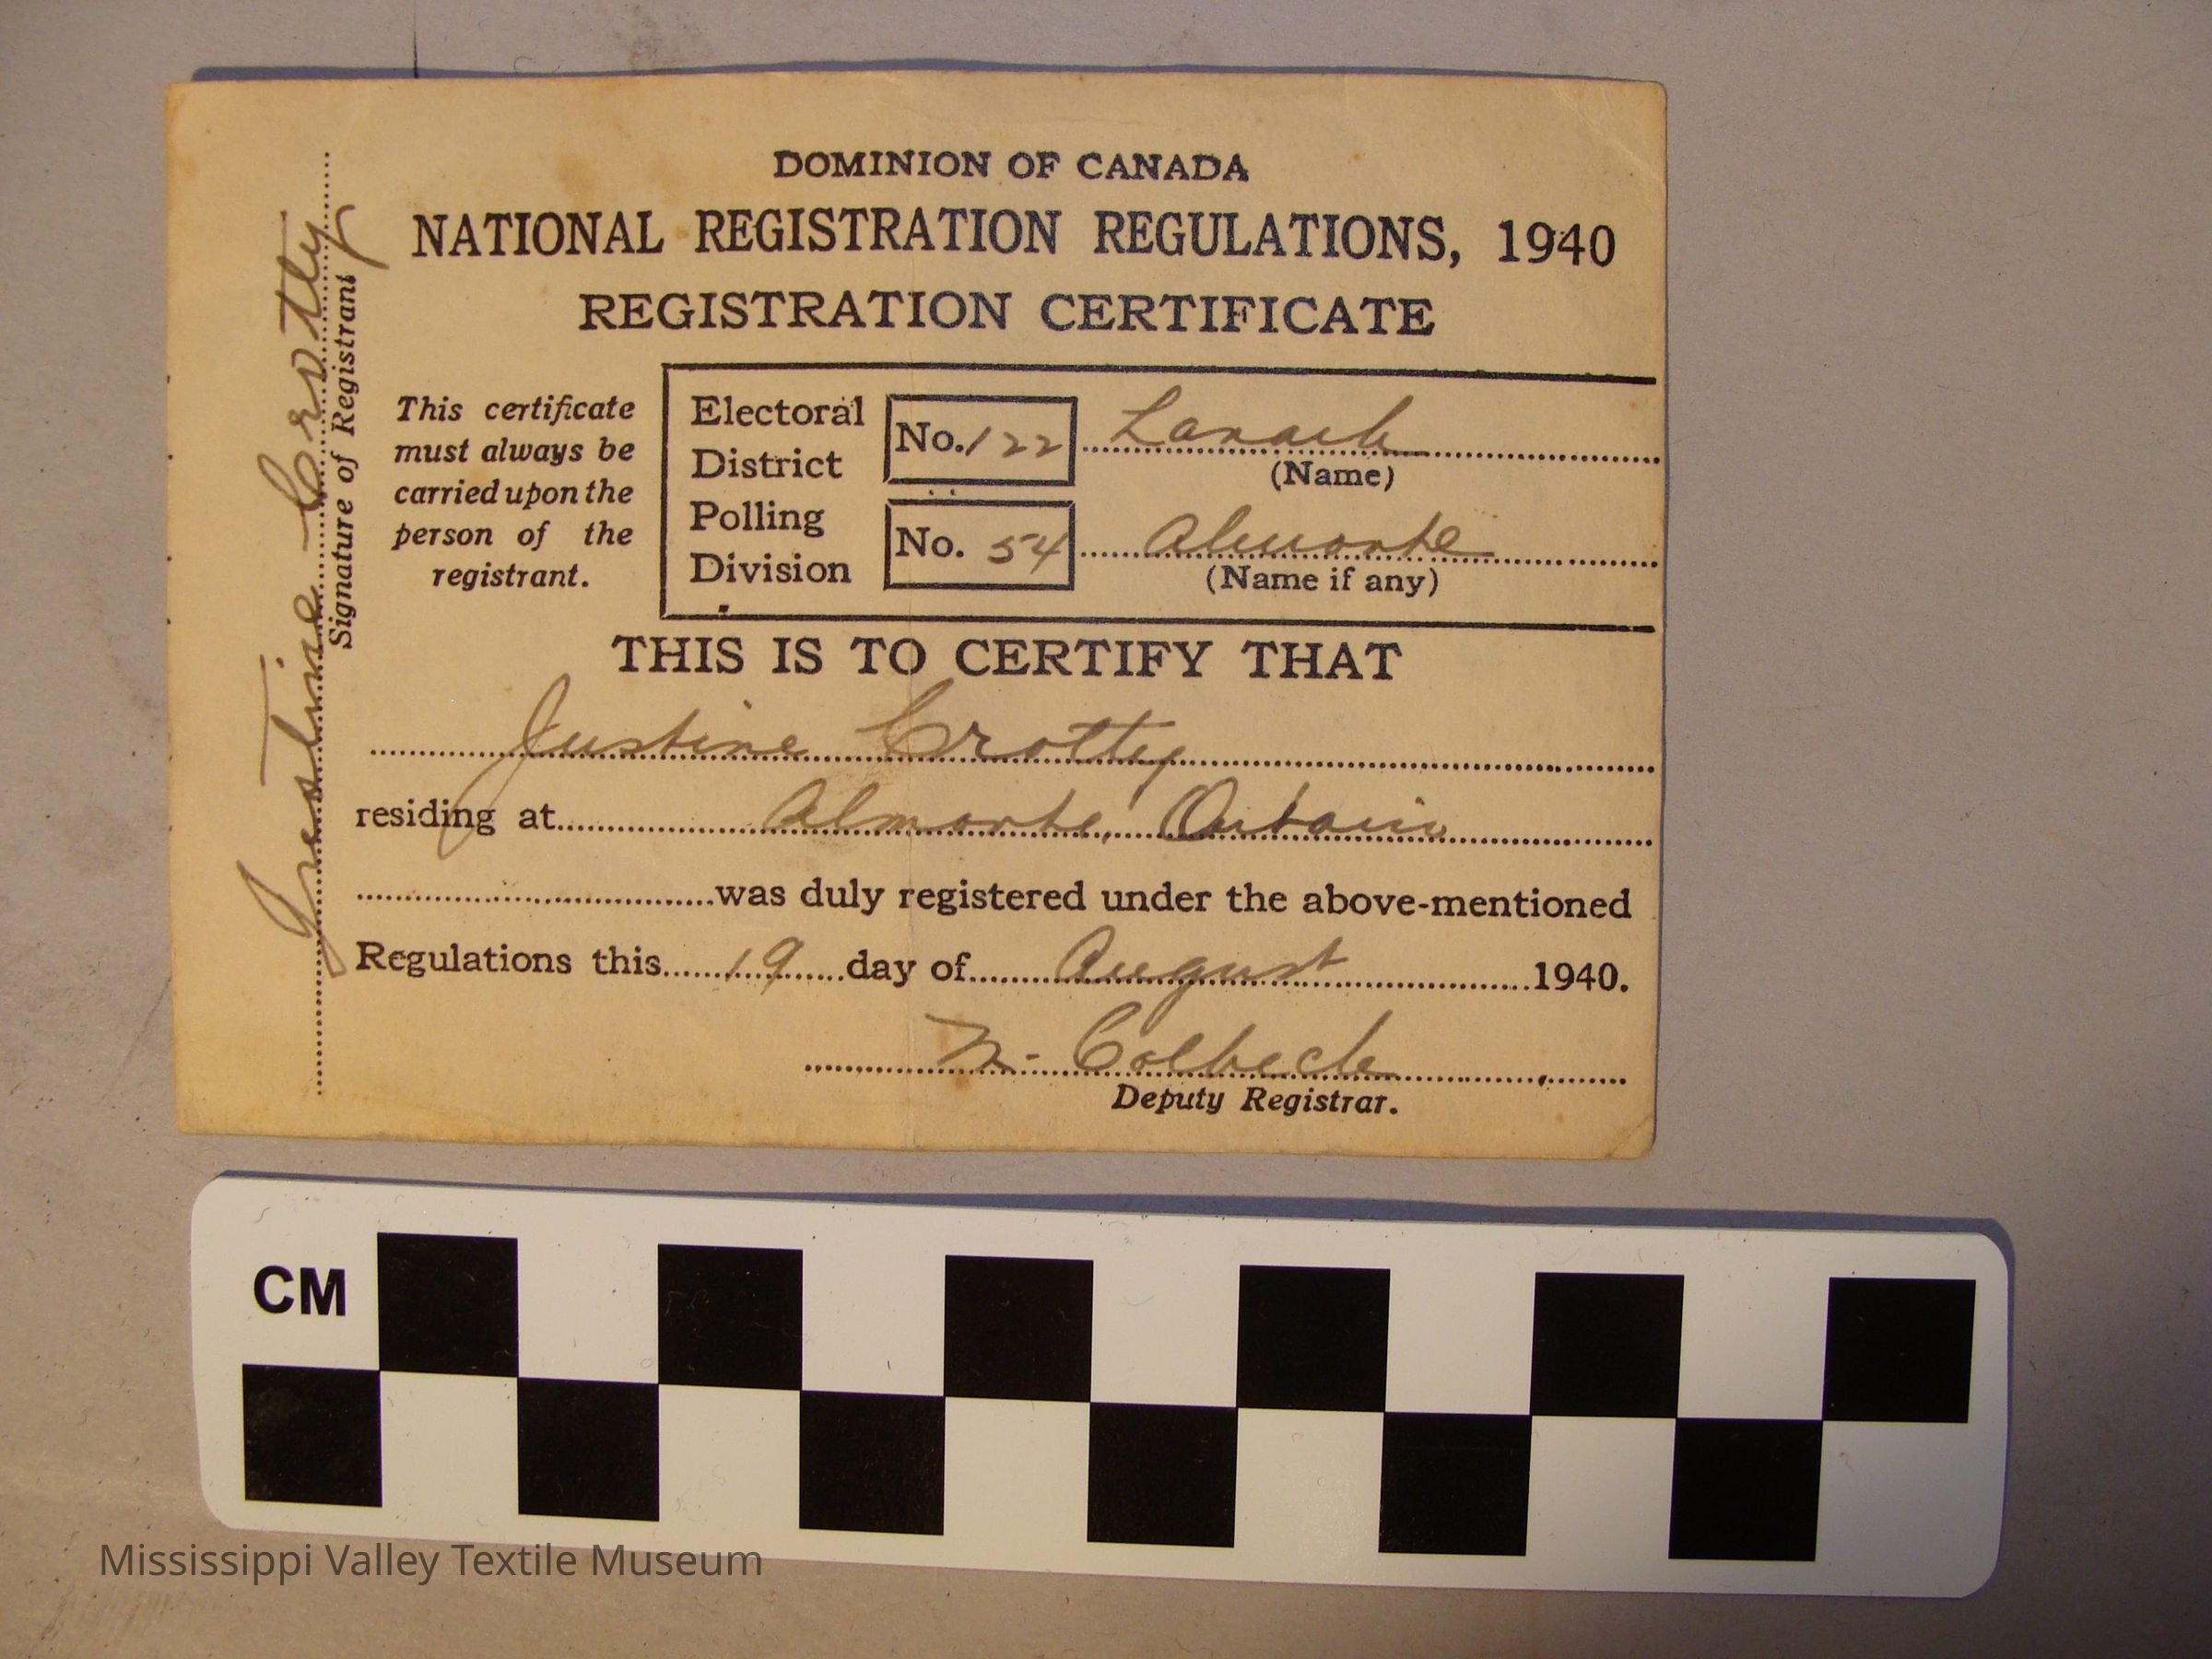 DOMINION OF CANADA
NATIONAL REGISTRATION REGULATIONS, 1940
REGISTRATION CERTIFICATE
This certificate
must always be
carried upon the
person of the
registrant.
Electoral
District
No. 122
Lanark
(Name)
Polling
Division
No. 54
Almonte
(Name if any)
THIS IS TO CERTIFY THAT
Justine Crotty
residing at Almonte, Ontario
was duly registered under the above-mentioned
Regulations this 19 day of August 1940.
N. Colbeck
Deputy Registrar.
Justine Crotty
Signature of Registrant
CM
Mississippi Valley Textile Museum